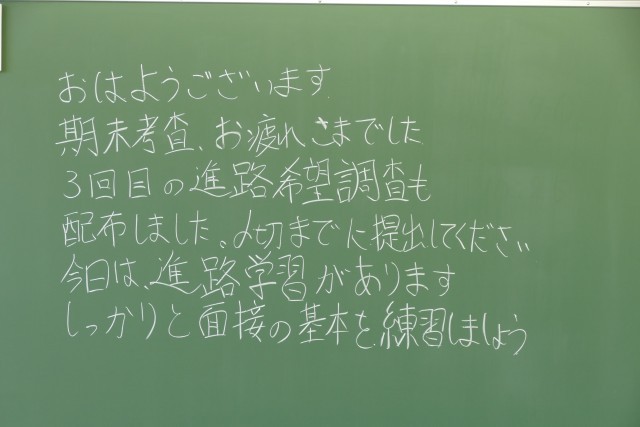 おはようございます
期末考査、お疲れさまでした
3回目の進路希望調査も
配布しました。〆切までに提出してください
今日は、進路学習があります
しっかりと面接の基本を練習しましょう